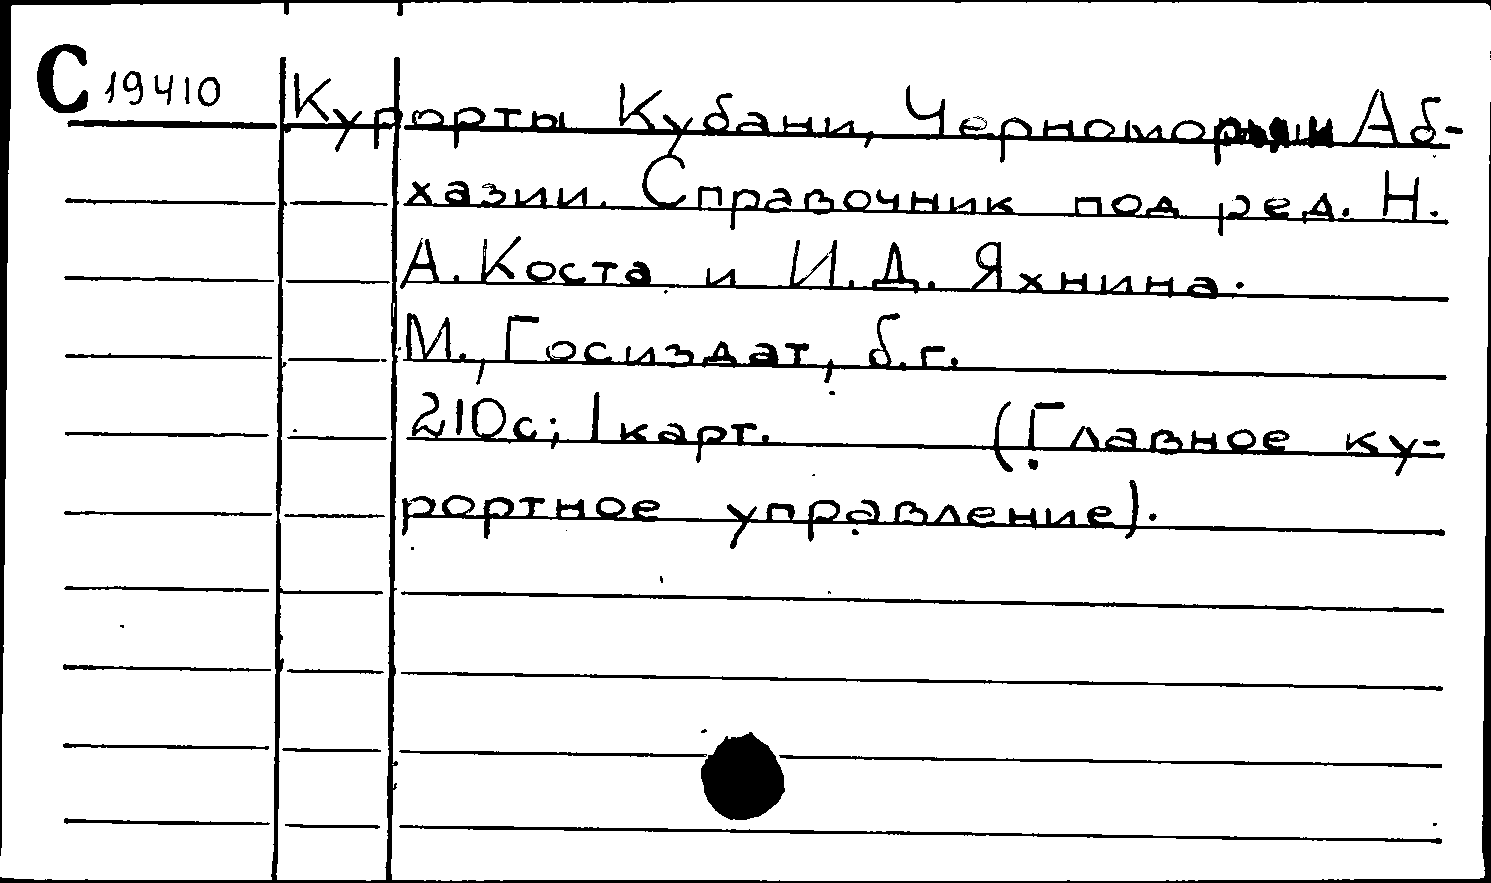 С 19410
Курорты Кубани, Черноморья и Аб-
хазии. Справочник под ред. Н.
А. Коста и И. Д. Яхнина.
М., Госиздат, б.г.
210с; 1 карт. (Главное ку-
рортное управление).